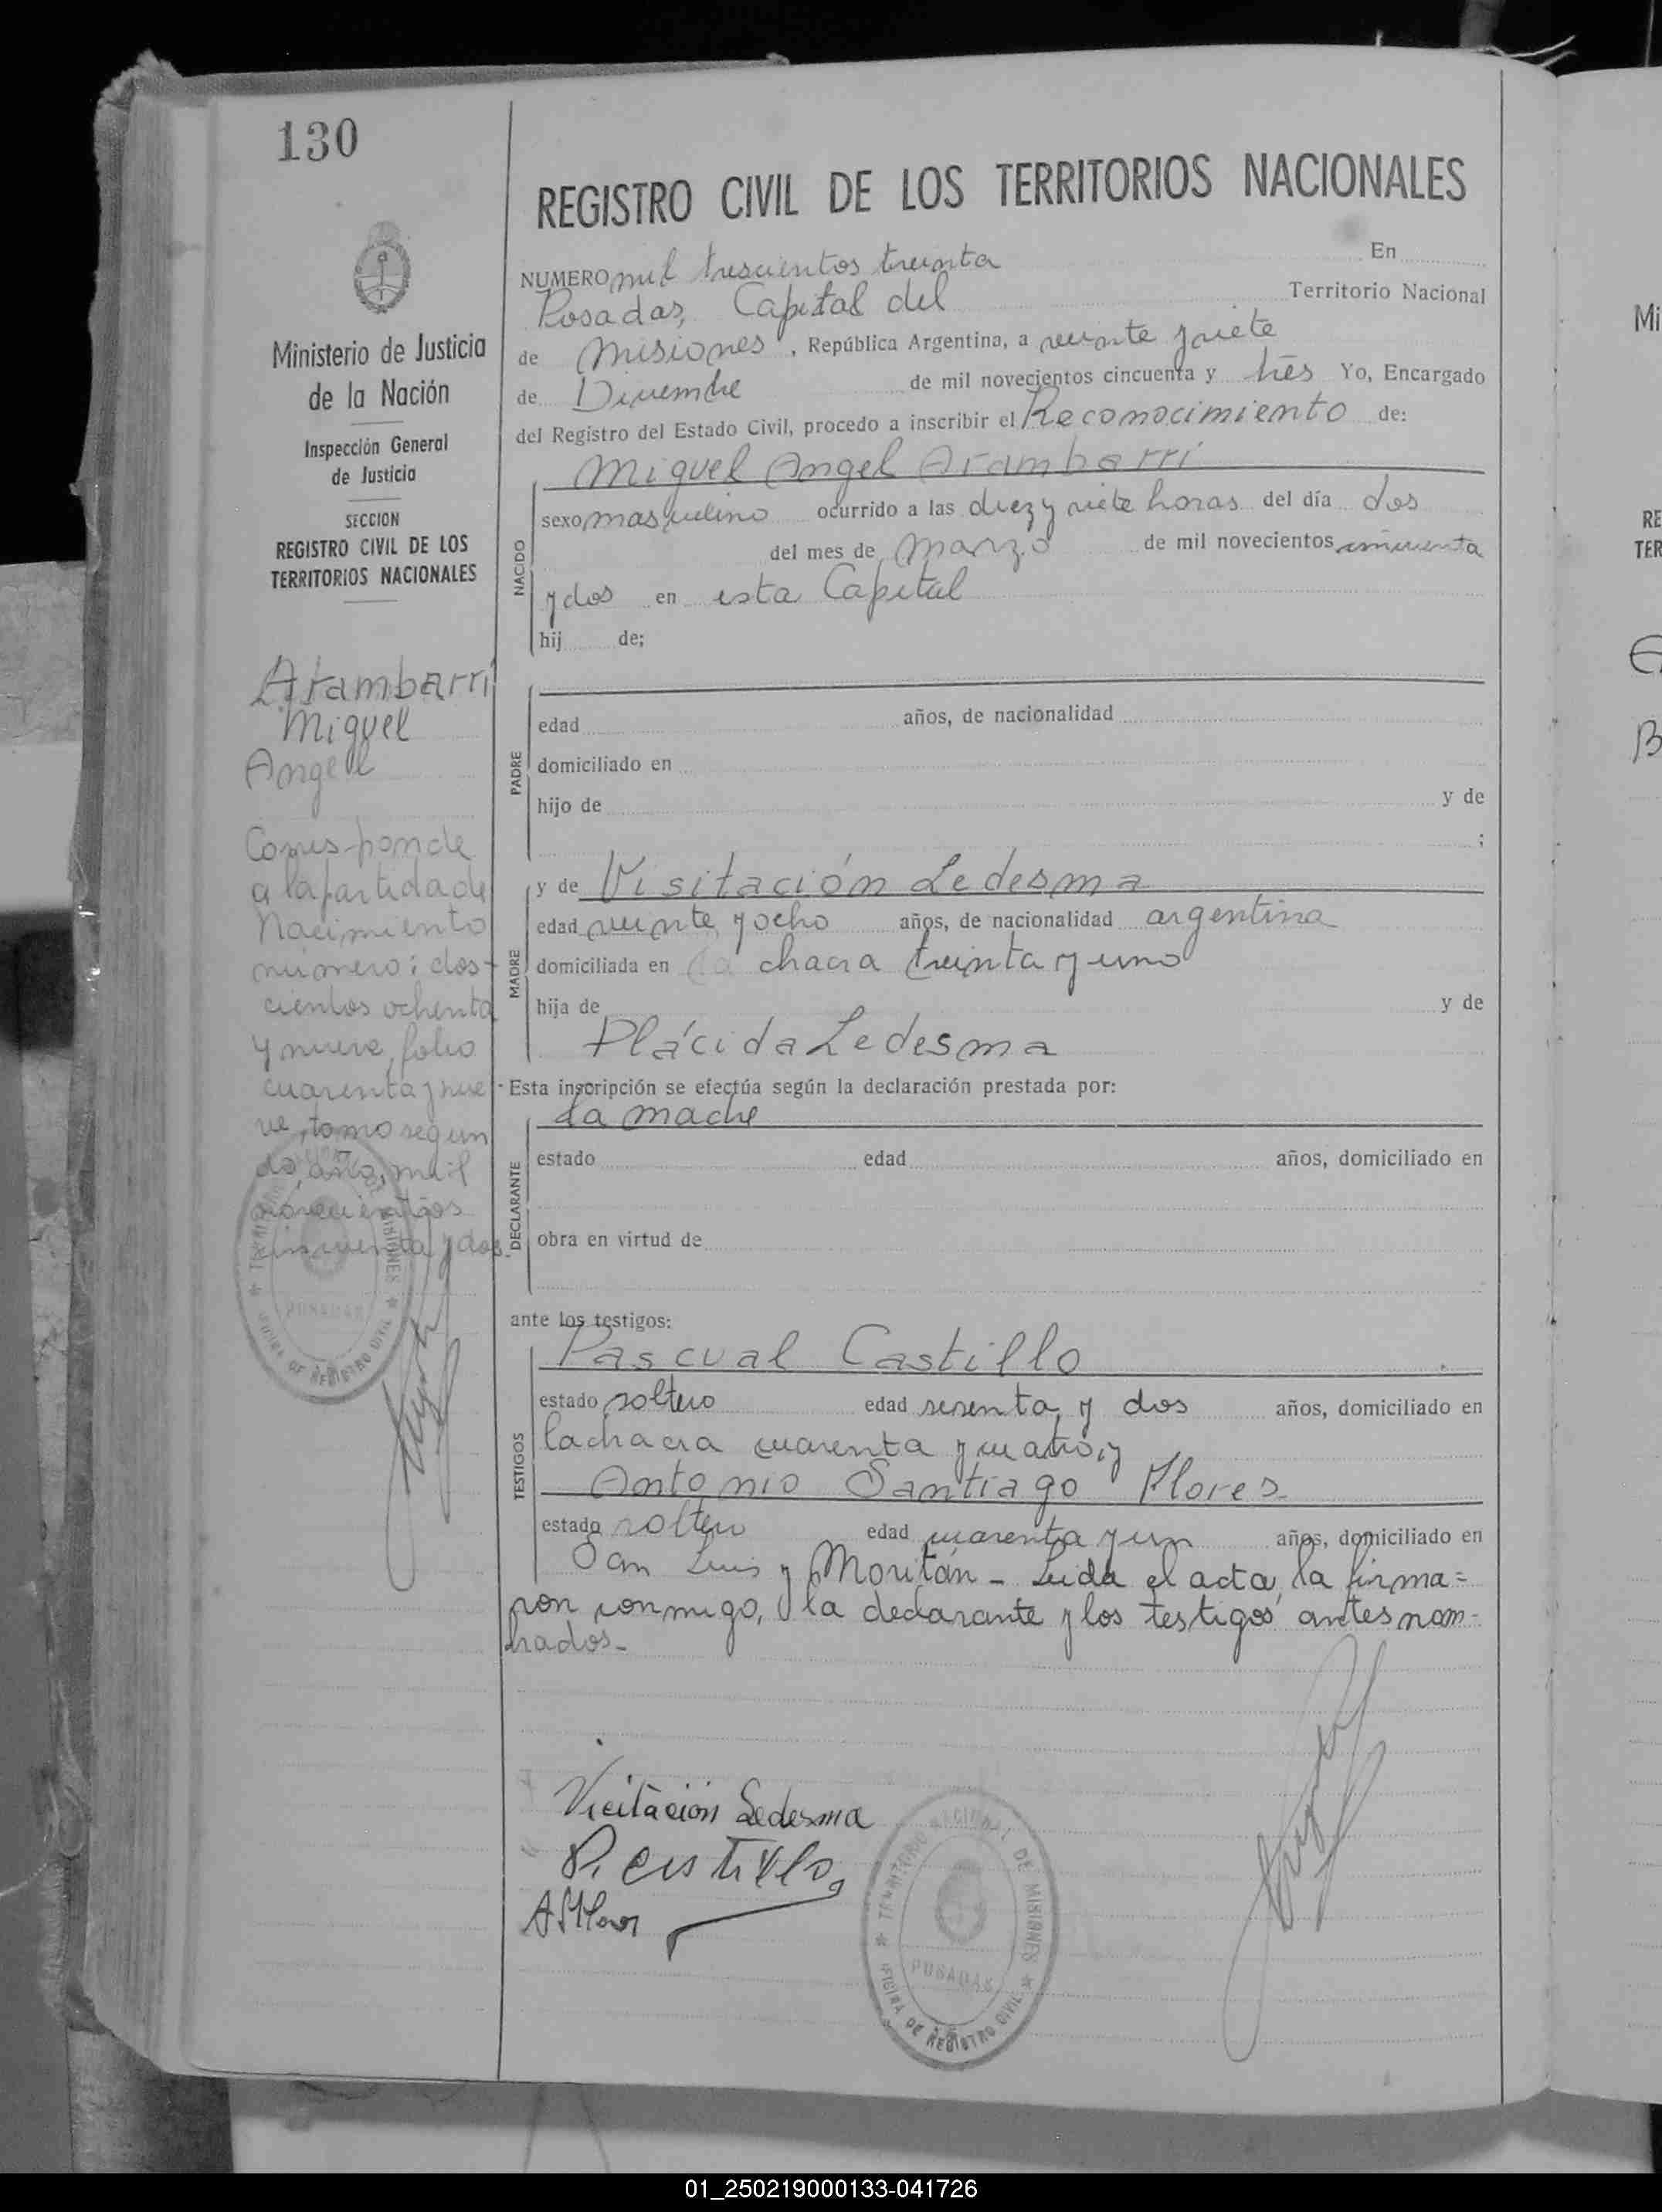 130
Ministerio de Justicia
de la Nación
Inspección General
de Justicia
SECCION
REGISTRO CIVIL DE LOS
TERRITORIOS NACIONALES
Arambarri
Miguel
Angel
Corresponde
a la partida de
Nacimiento
número: dos-
cientos ochenta
y nueve, folio
cuarenta y nue
ve, tomo segun
do, año, mil
novecientos
cincuenta y dos.
REGISTRO CIVIL DE LOS TERRITORIOS NACIONALES
NUMERO mil trescientos treinta En
Posadas, Capital del Territorio Nacional
de Misiones, República Argentina, a veinte y siete
de Diciembre de mil novecientos cincuenta y trés Yo, Encargado
del Registro del Estado Civil, procedo a inscribir el Reconocimiento de:
NACIDO
Miguel Angel Arambarri
sexo masculino ocurrido a las diez y siete horas del día dos
del mes de Marzo de mil novecientos cincuenta
y dos en esta Capital
hij de;
PADRE
edad años, de nacionalidad
domiciliado en
hijo de y de
;
MADRE
y de Visitación Ledesma
edad veinte y ocho años, de nacionalidad argentina
domiciliada en la chacra treinta y uno
hija de y de
Plácida Ledesma
Esta inscripción se efectúa según la declaración prestada por:
DECLARANTE
La madre
estado edad años, domiciliado en
obra en virtud de
ante los testigos:
TESTIGOS
Pascual Castillo
estado soltero edad sesenta y dos años, domiciliado en
la chacra cuarenta y cuatro, y
Antonio Santiago Flores
estado soltero edad cuarenta y un años, domiciliado en
San Luis y Moritán - Leida el acta, la firma=
ron conmigo, la declarante y los testigos antes nom-
brados-
Vicitación Ledesma
P. Castillo
TERRITORIO NACIONAL DE MISIONES
POSADAS
OFICINA DE REGISTRO CIVIL
Mi
RE
TER
01_250219000133-041726